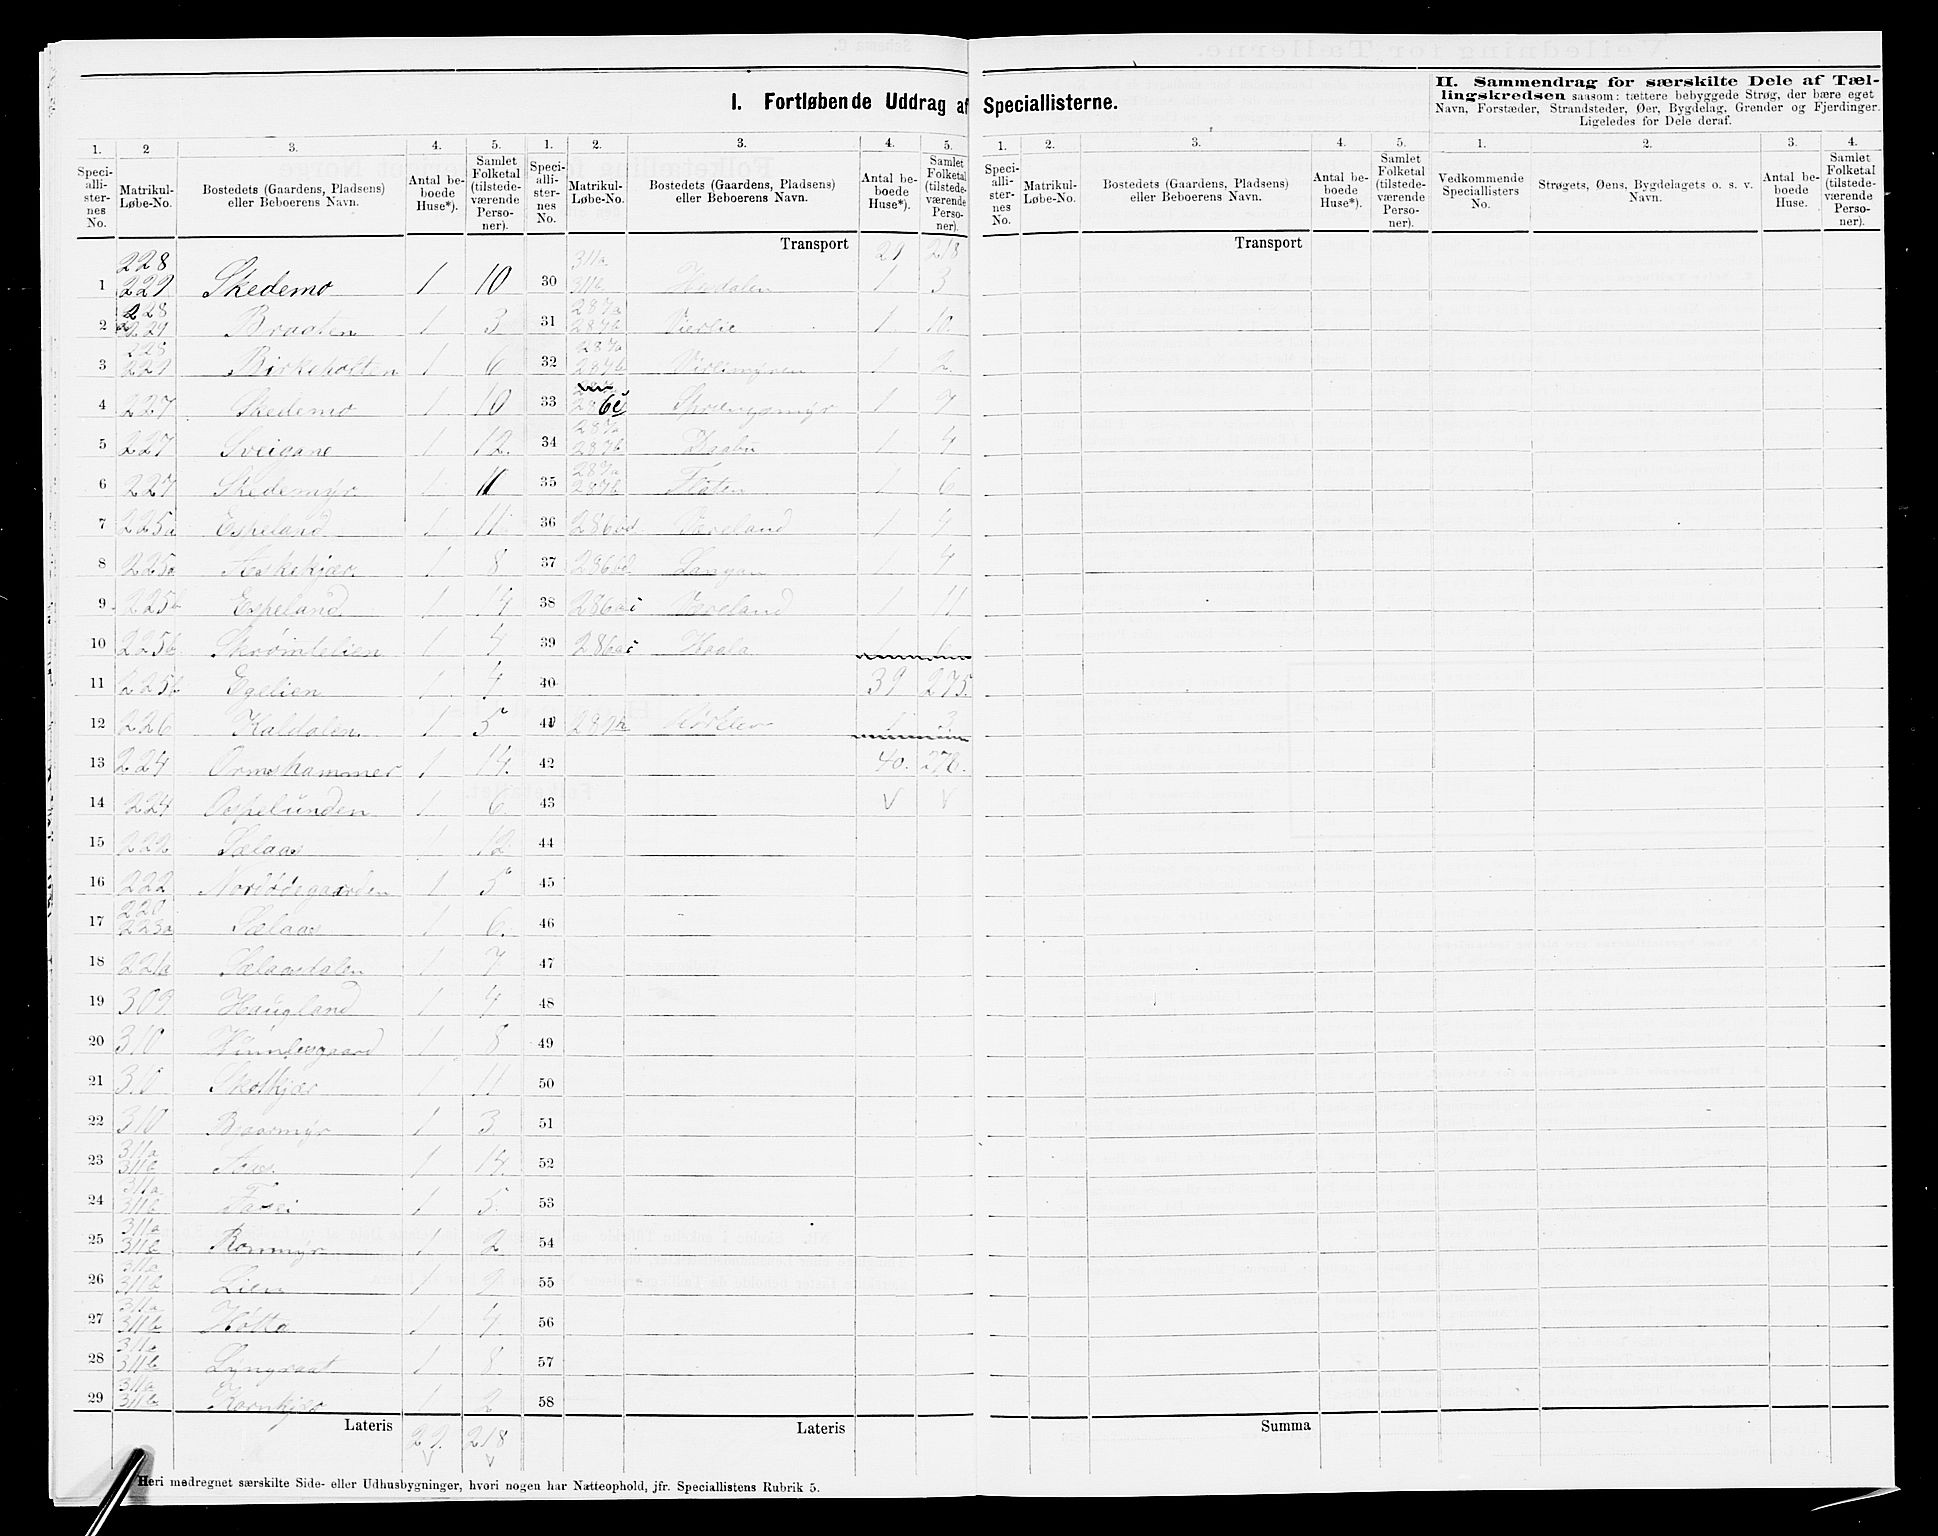 I. Fortløbende Uddrag af Speciallisterne.
II. Sammendrag for særskilte Dele af Tæl-
lingskredsen saasom: tættere bebyggede Strøg, der bære eget
Navn, Forstæder, Strandsteder, Øer, Bygdelag, Grender og Fjerdinger.
Ligeledes for Dele deraf.
1. 2 3. 4. 5. 1. 2. 3. 4. 5. 1. 2. 3. 4. 5. 1. 2. 3. 4.
Speci-alli-ster-nes No. Matrikul-Løbe-No. Bostedets (Gaardens, Pladsens) eller Beboerens Navn. Antal be-boede Huse*). Samlet Folketal (tilstede-værende Perso-ner).
Speci-alli-ster-nes No. Matrikul-Løbe-No. Bostedets (Gaardens, Pladsens) eller Beboerens Navn. Antal be-boede Huse*). Samlet Folketal (tilstede-værende Perso-ner).
Speci-alli-ster-nes No. Matrikul-Løbe-No. Bostedets (Gaardens, Pladsens) eller Beboerens Navn. Antal be-boede Huse*). Samlet Folketal (tilstede-værende Perso-ner).
Vedkommende Speciallisters No. Strøgets, Øens, Bygdelagets o. s. v. Navn. Antal be-boede Huse. Samlet Folketal (tilstede-værende Perso-ner).
1 228 229 Skedemo 1 10
2 228 229 Braaten 1 3
3 228 229 Birkeholten 1 6
4 227 Skedemo 1 10
5 227 Sveigane 1 12.
6 227 Skedemyr 1 11
7 225a Espeland 1 11
8 225a Askekjær 1 8
9 225b Espeland 1 14
10 225b Skrømtelien 1 4
11 225b Egelien 1 4
12 226 Kaldalen 1 5
13 224 Ormshammer 1 14.
14 224 Ospelunden 1 6.
15 222 Sælaas 1 12
16 222 Nordødegaarden 1 5
17 220 223a Sælaas 1 6.
18 221a Sælaasdalen 1 7
19 309 Haugland 1 4
20 310 1 8
21 310 Skolkjær 1 11
22 310 Baasmyr 1 3
23 311a 311b Aas 1 14.
24 311a 311b 1 5.
25 311a 311b Rommyr 1 2
26 311a 311b Lien 1 9
27 311a 311b Holta 1 4
28 311a 311b Lyngraat 1 8
29 311a 311b Kornkjær 1 2
Lateris 29. 218
Transport 29 218
30 311a 311b 1 3
31 287a 287b Vierlie 1 10.
32 287a 287b Virlimyren 1 2.
33 Sprængsmyr 1 9
34 287a 287b 1 4
35 287a 287b Flaten 1 6
36 286bd Væveland 1 4
37 286bd Langan 1 4
38 286ac Væveland 1 11
39 286ac Haala 1 6
40 39 275.
41 1 3
42 40. 278.
43
44
45
46
47
48
49
50
51
52
53
54
55
56
57
58
Lateris
Transport
Summa
Heri medregnet særskilte Side- eller Udhusbygninger, hvori nogen har Natteophold, jfr. Speciallistens Rubrik 5.